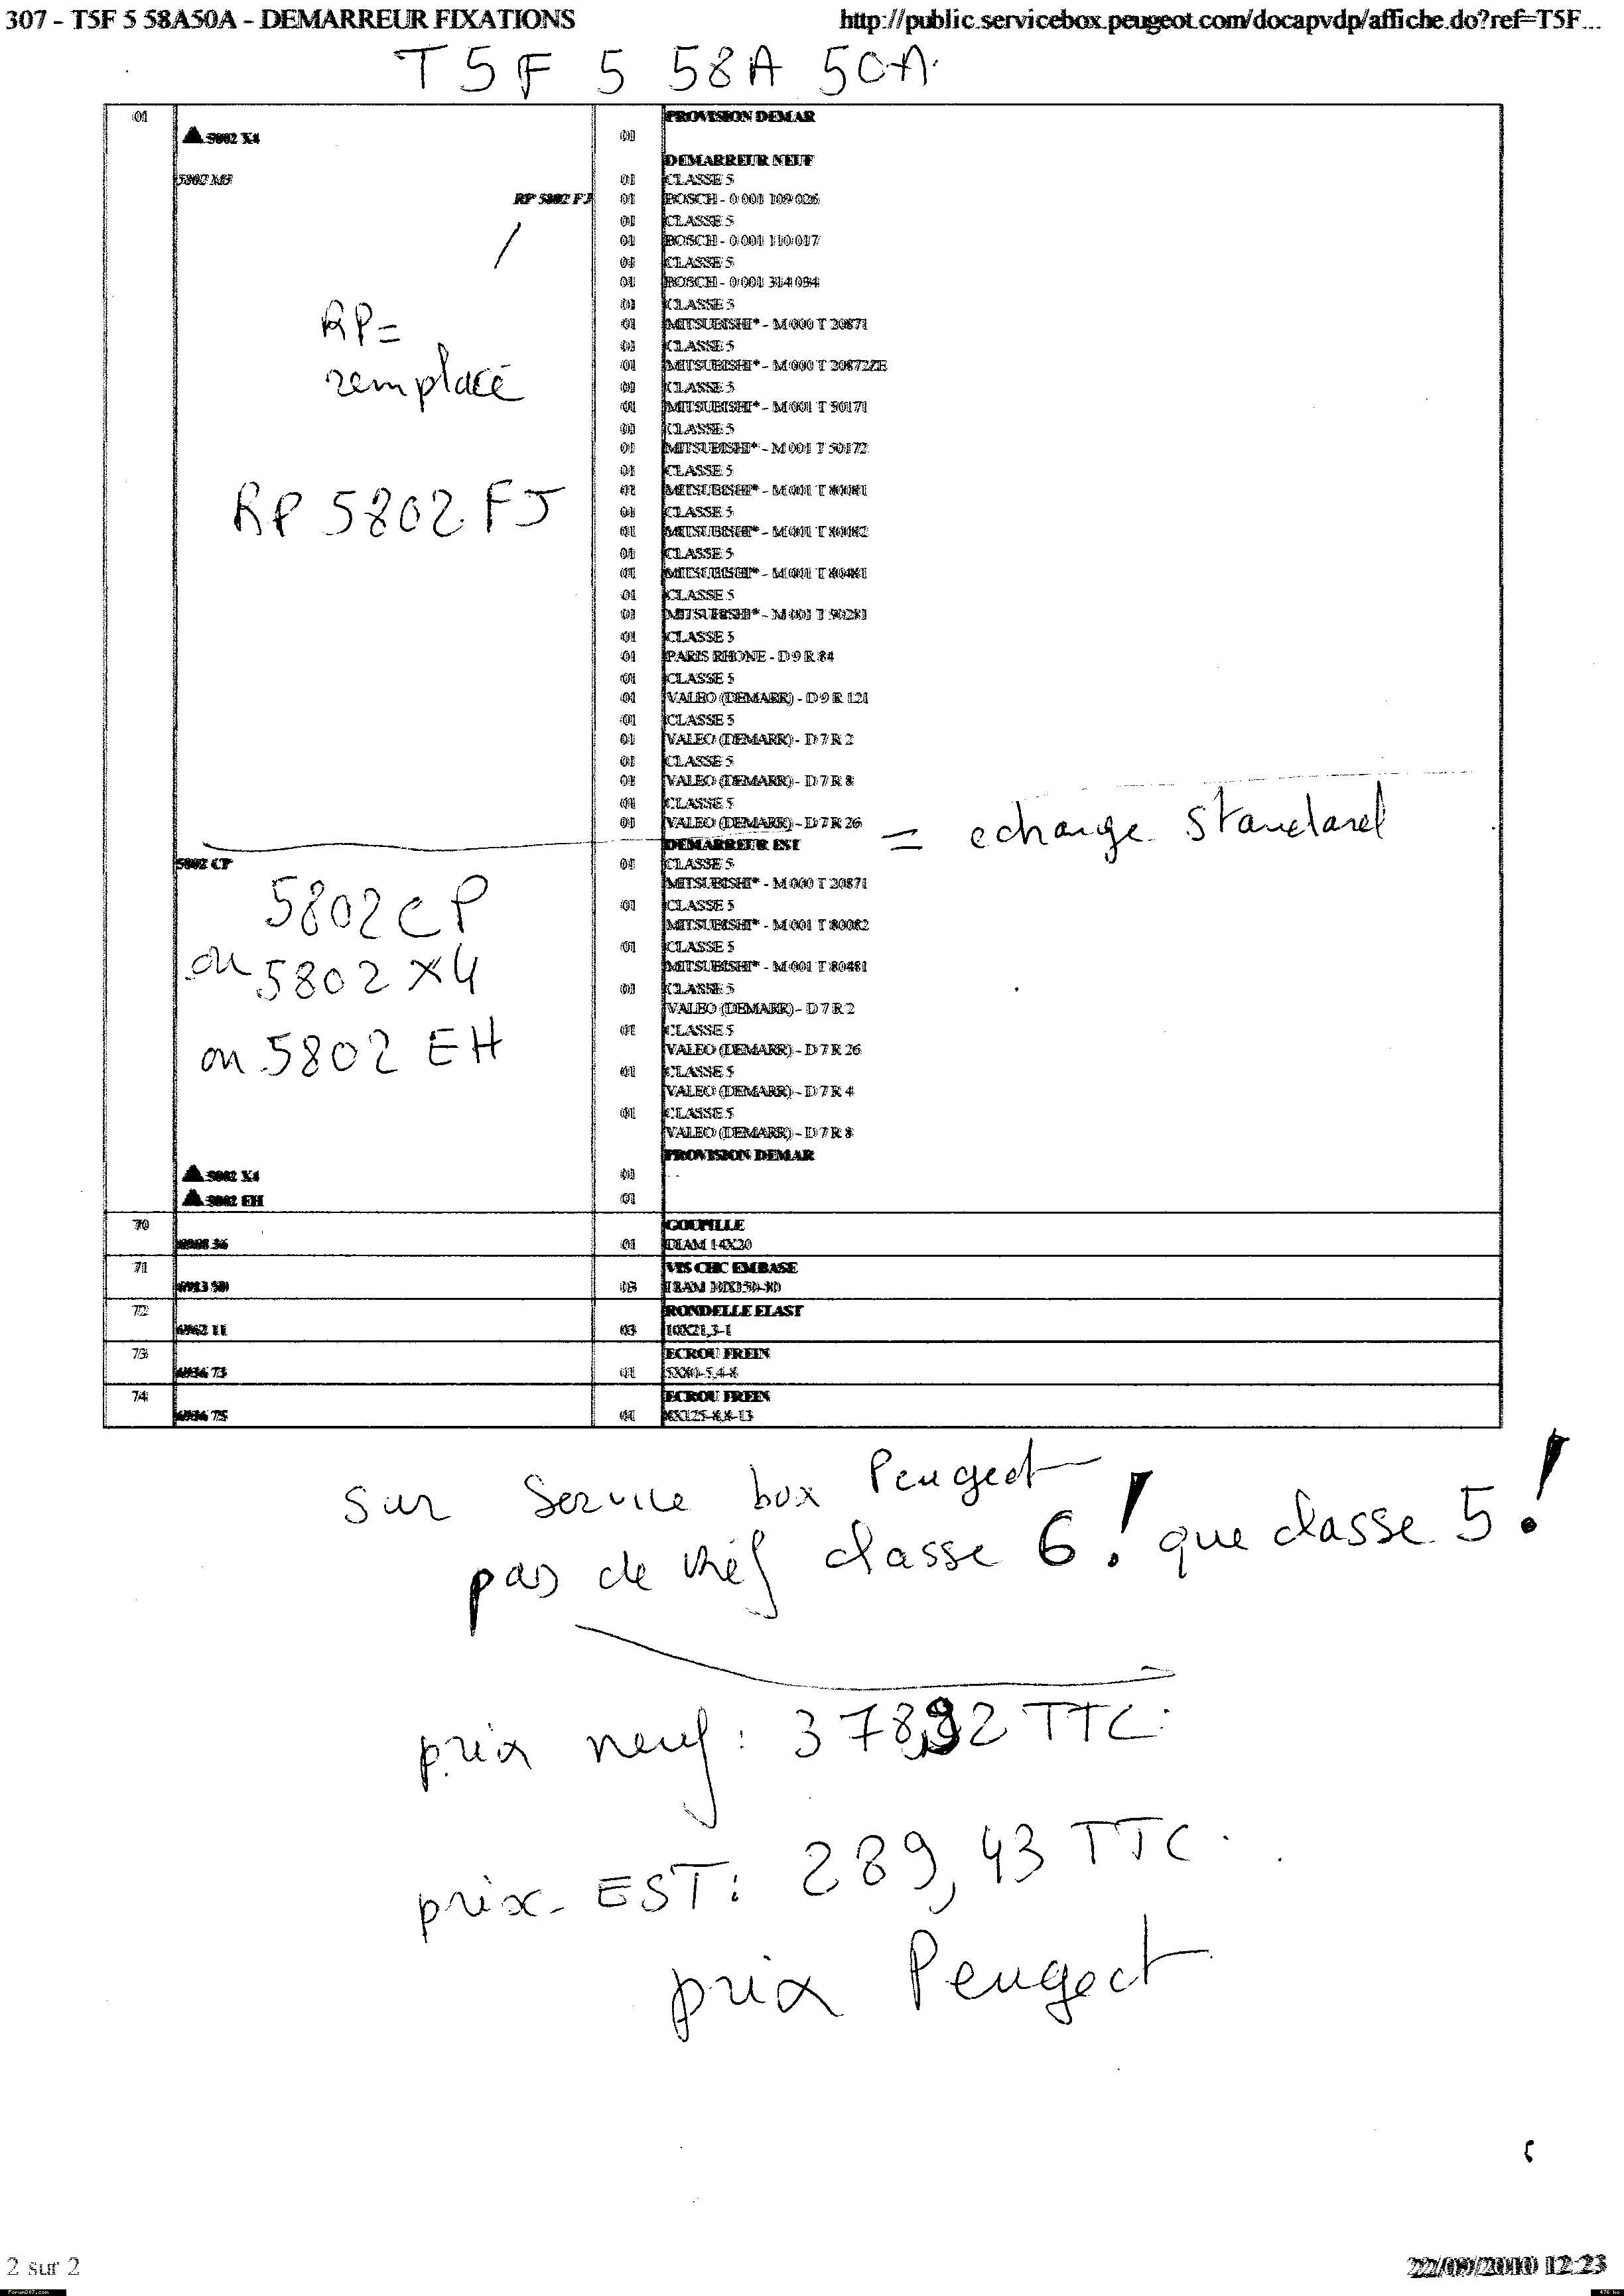 307 - T5F 5 58A50A - DEMARREUR FIXATIONS
http://public.servicebox.peugeot.com/docapvdp/affiche.do?ref=T5F...
T5F 5 58A 50A
01 PROVISION DEMAR
5802 X4 01
DEMARREUR NEUF
01 CLASSE 5
RP 5802 FJ 01 BOSCH - 0 001 109 026
01 CLASSE 5
01 BOSCH - 0 001 110 017
01 CLASSE 5
01 BOSCH - 0 001 314 034
01 CLASSE 5
01 MITSUBISHI* - M 000 T 20871
01 CLASSE 5
01 MITSUBISHI* - M 000 T 20872ZE
01 CLASSE 5
01 MITSUBISHI* - M 001 T 50171
01 CLASSE 5
01 MITSUBISHI* - M 001 T 50172
01 CLASSE 5
01 MITSUBISHI* - M 001 T 80081
01 CLASSE 5
01 MITSUBISHI* - M 001 T 80082
01 CLASSE 5
01 MITSUBISHI* - M 001 T 80481
01 CLASSE 5
01 MITSUBISHI* - M 001 T 90281
01 CLASSE 5
01 PARIS RHONE - D 9 R 84
01 CLASSE 5
01 VALEO (DEMARR) - D 9 R 121
01 CLASSE 5
01 VALEO (DEMARR) - D 7 R 2
01 CLASSE 5
01 VALEO (DEMARR) - D 7 R 8
01 CLASSE 5
01 VALEO (DEMARR) - D 7 R 26
RP =
remplacé
RP 5802 FJ
DEMARREUR EST = echange standard
5802 CP 01 CLASSE 5
MITSUBISHI* - M 000 T 20871
01 CLASSE 5
MITSUBISHI* - M 001 T 80082
01 CLASSE 5
MITSUBISHI* - M 001 T 80481
01 CLASSE 5
VALEO (DEMARR) - D 7 R 2
01 CLASSE 5
VALEO (DEMARR) - D 7 R 26
01 CLASSE 5
VALEO (DEMARR) - D 7 R 4
01 CLASSE 5
VALEO (DEMARR) - D 7 R 8
5802 CP
ou 5802 X4
ou 5802 EH
PROVISION DEMAR
5802 X4 01
5802 EH 01
70 GOUPILLE
01 DIAM 14X20
71 VIS CHC EMBASE
03
72 RONDELLE ELAST
6962 11 03 10X21,3-1
73 ECROU FREIN
6936 73 01 5X80-5,4-8
74 ECROU FREIN
6936 75 01 8X125-8,8-13
sur Service box Peugeot
pas de réf classe 6 ! que classe 5 !
prix neuf : 378,92 TTC.
prix EST : 289,43 TTC.
prix Peugeot
2 sur 2
22/09/2010 12:23
Forum307.com